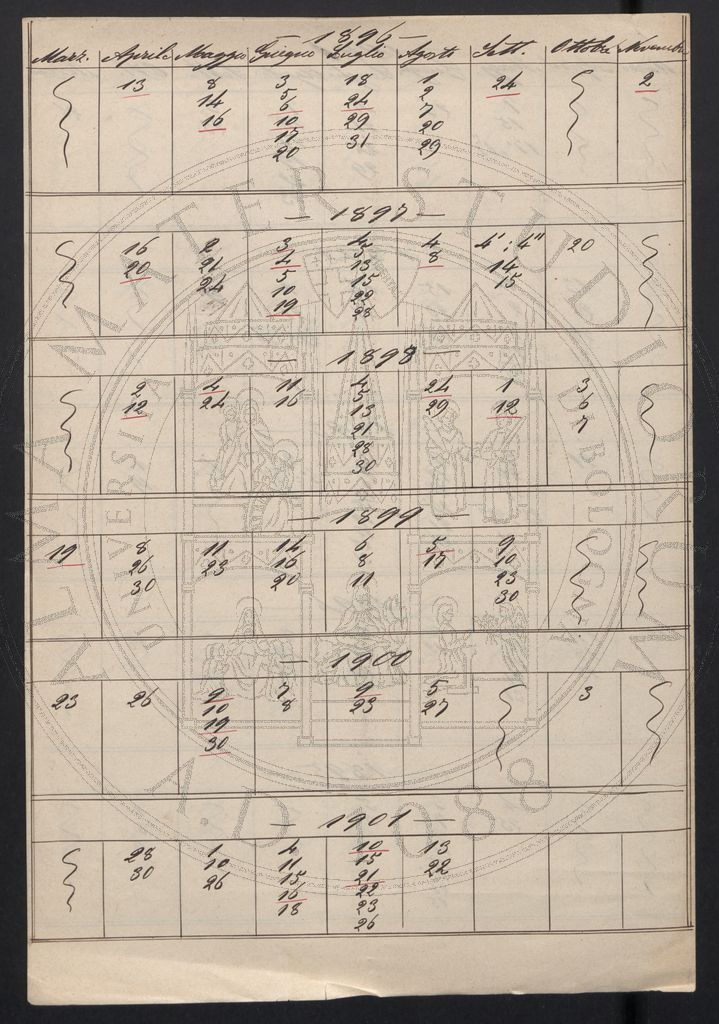 1896
Marz. Aprile Maggio Giugno Luglio Agosto Sett. Ottobre Novembre
13 8 3 18 1 24 2
14 5 24 2
16 6 29 7
10 31 20
17 29
20
— 1897 —
16 2 3 4 4 4' : 4" 20
20 21 4 5 8 14
24 5 13 15
10 15
19 22
28
— 1898 —
2 4 11 4 24 1 3
12 24 16 5 29 12 6
13 7
21
28
30
— 1899 —
19 8 11 14 6 5 9
26 23 16 8 17 10
30 20 11 23
30
— 1900 —
23 26 9 7 9 5 3
10 8 23 27
19
30
— 1901 —
28 1 4 10 13
30 10 11 15 22
26 15 21
16 22
18 23
26
ALMA MATER STUDIORUM
UNIVERSITÀ DI BOLOGNA
A.D. 1088